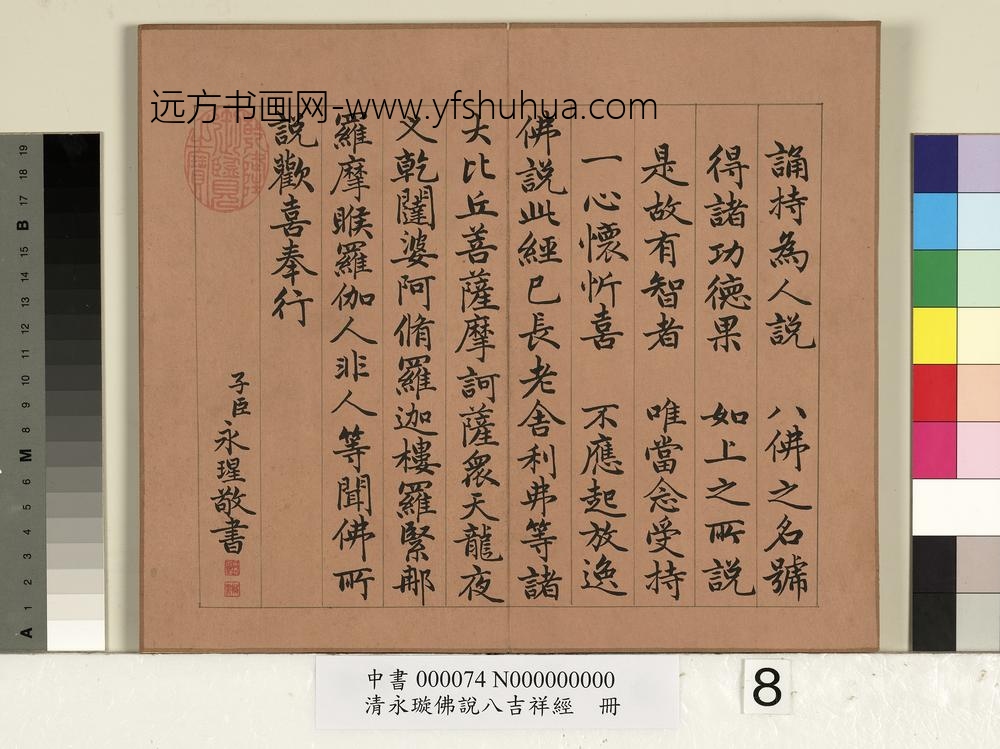 远方书画网-www.yfshuhua.com
誦持為人說　八佛之名號
得諸功德果　如上之所說
是故有智者　唯當念受持
一心懷忻喜　不應起放逸
佛說此經已長老舍利弗等諸
大比丘菩薩摩訶薩眾天龍夜
叉乾闥婆阿脩羅迦樓羅緊那
羅摩睺羅伽人非人等聞佛所
說歡喜奉行
子臣永瑆敬書
中書 000074 N000000000
清永璇佛說八吉祥經　冊
8
A 1 2 3 4 5 6 M 8 9 10 11 12 13 14 15 B 17 18 19